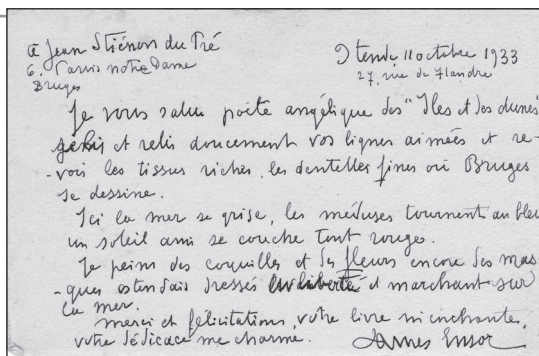 à Jean Stiénon du Pré
Ostende 11 octobre 1933
6. Parvis notre Dame
27, rue de Flandre
Bruges
Je vous salue poète angélique des "Iles et des dunes"
je lis et relis doucement vos lignes aimées et re-
-vois les tissus riches, les dentelles fines où Bruges
se dessine.
Ici la mer se grise, les méduses tournent au bleu
un soleil ami se couche tout rouge.
Je peins des coquilles et des fleurs encore des mas-
-ques ostendais dressés et marchant sur
la mer.
merci et félicitations, votre livre m'enchante,
votre dédicace me charme.
James Ensor